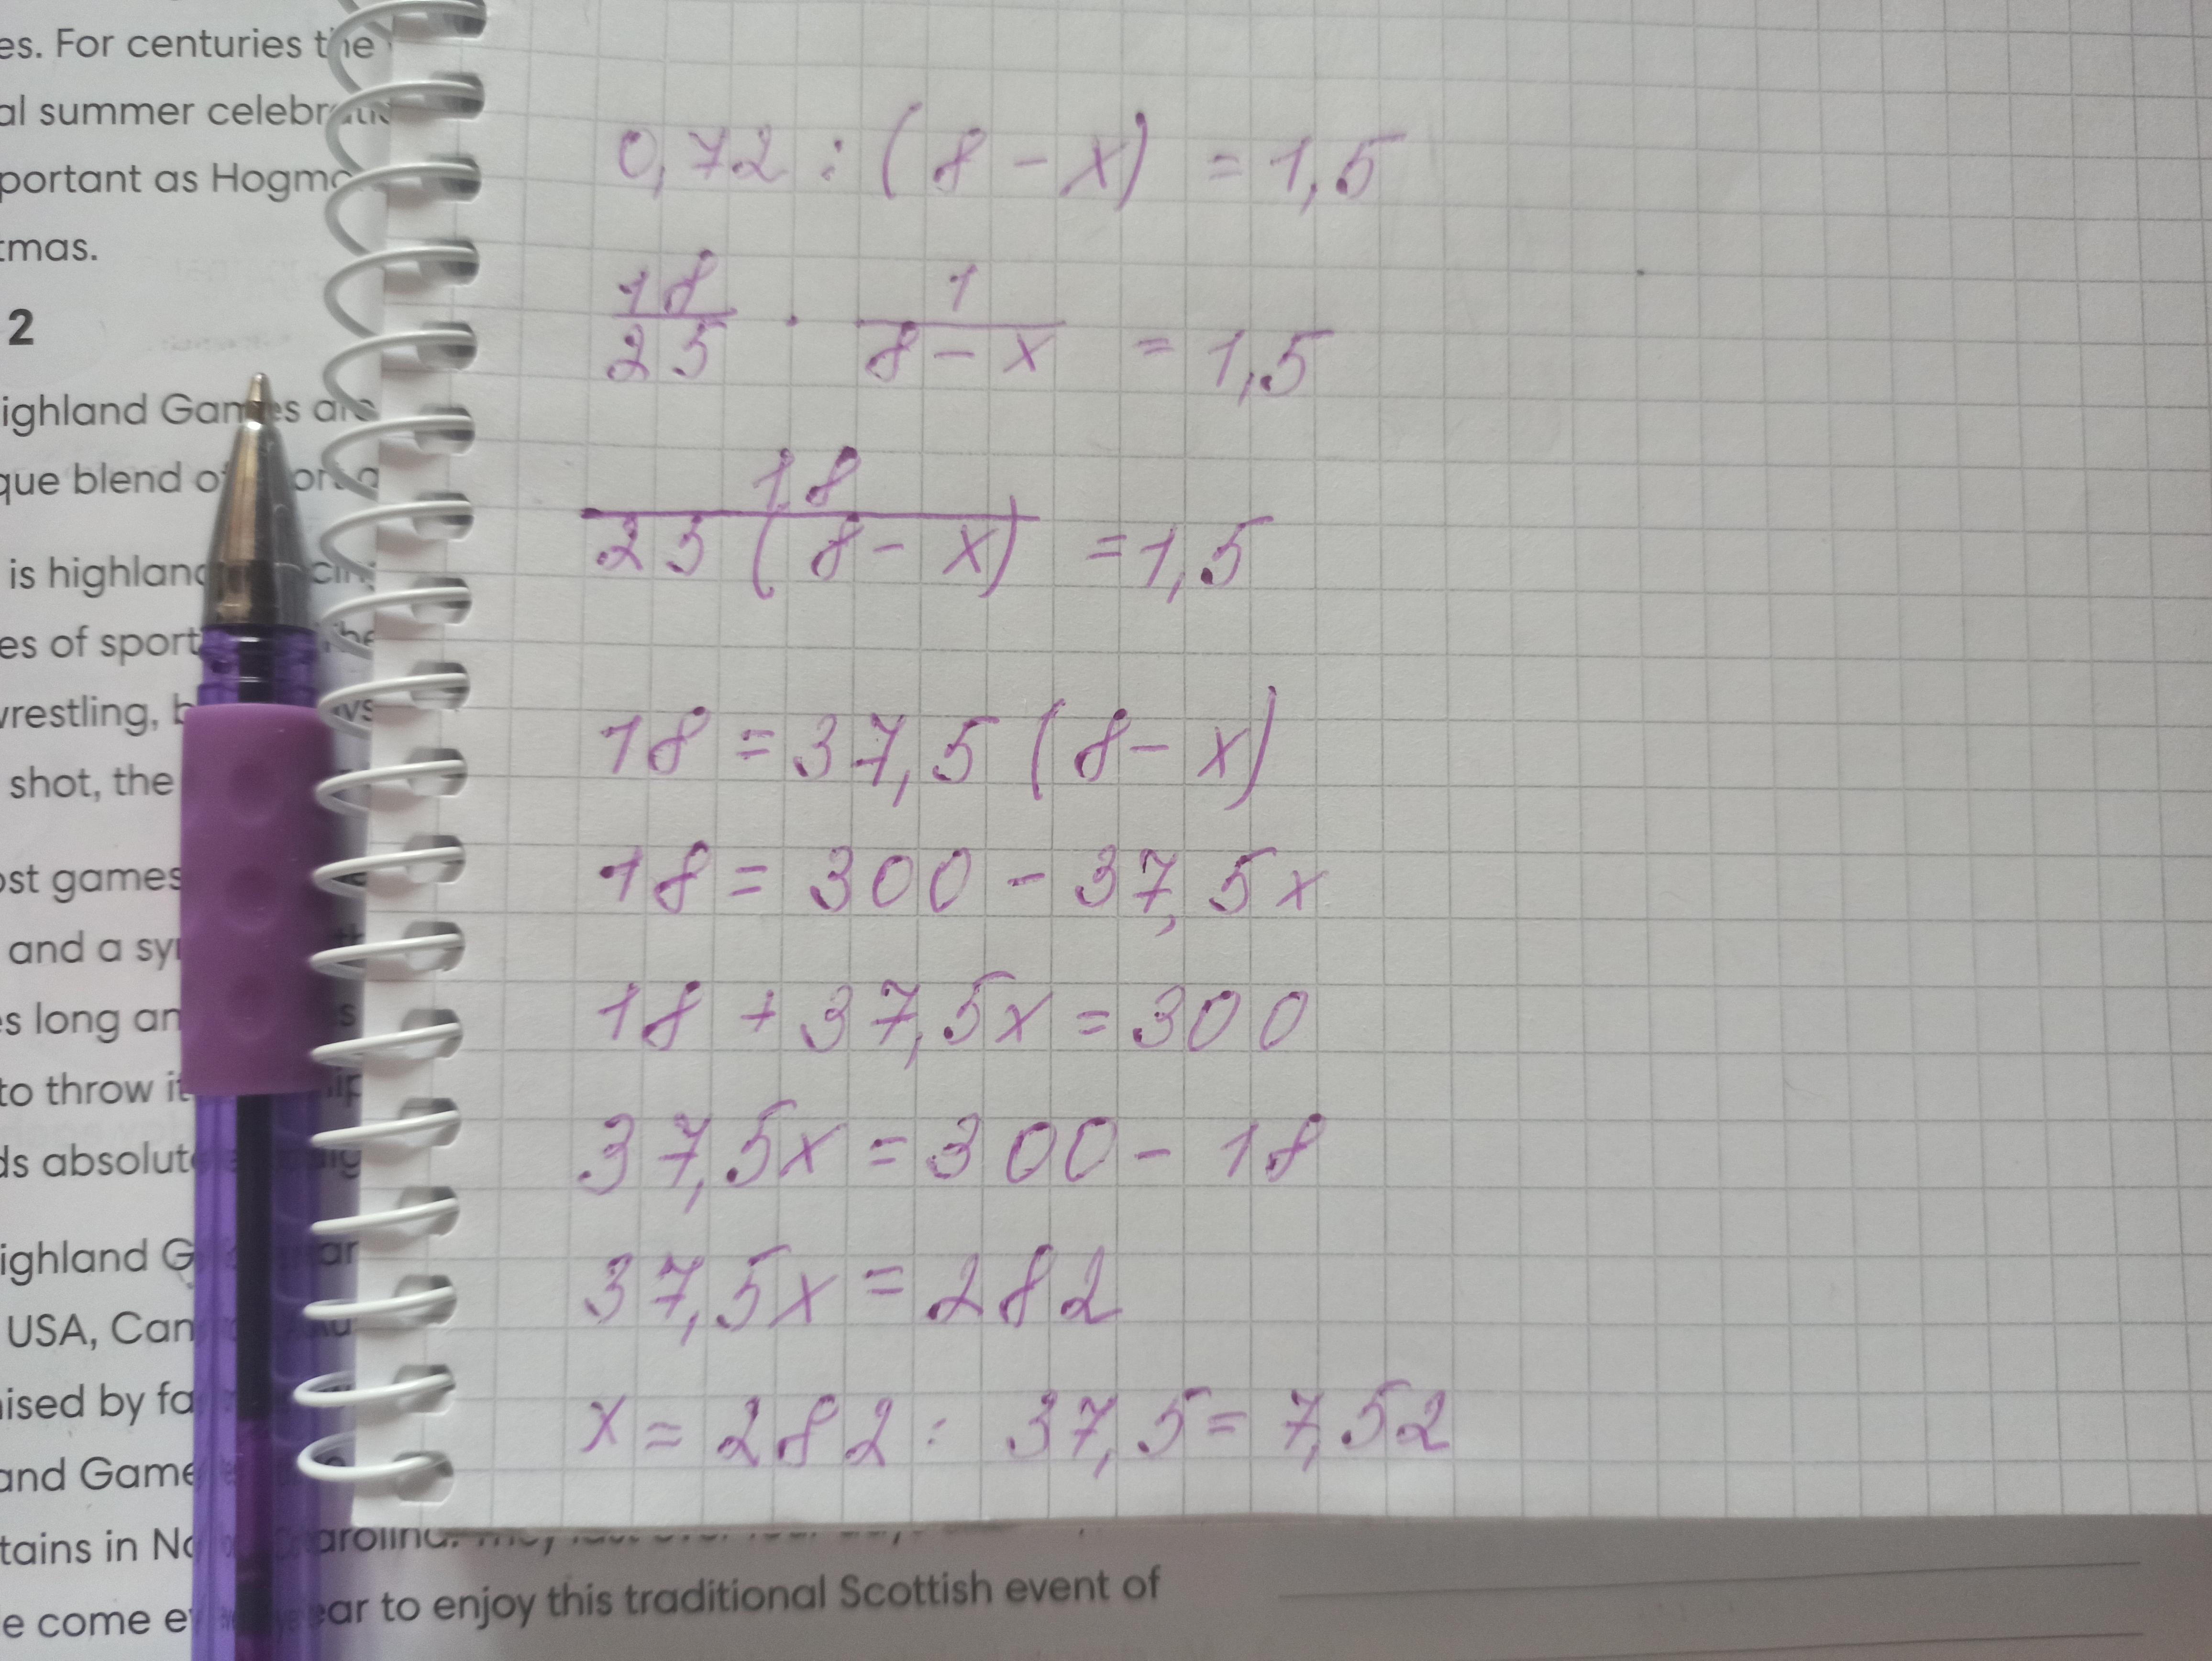 es. For centuries the
al summer celebratic
portant as Hogma
tmas.
2
ighland Games are
que blend of
is highland
es of sport
wrestling, b
shot, the
ost games
and a sy
es long an
to throw it
ds absolut
ighland G
USA, Can
nised by fa
and Game
tains in No
e come e ear to enjoy this traditional Scottish event of
0,72 : (8 - x) = 1,5
18/25 · 1/(8 - x) = 1,5
18/(25(8 - x)) = 1,5
18 = 37,5 (8 - x)
18 = 300 - 37,5x
18 + 37,5x = 300
37,5x = 300 - 18
37,5x = 282
x = 282 : 37,5 = 7,52